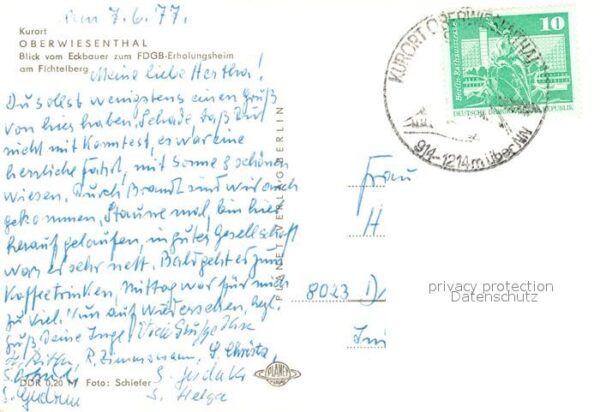 am 7.6.77.
Kurort
OBERWIESENTHAL
Blick vom Eckbauer zum FDGB-Erholungsheim
am Fichtelberg
Meine liebe Hertha!
Du sollst wenigstens einen Gruß
von hier haben. Schade daß Du
nicht mit konntest, es war eine
herrliche Fahrt, mit Sonne & schönen
Wiesen. Durch Brandt sind wir auch
gekommen. Staune mal, bin hier
herauf gelaufen, in guter Gesellschaft
war es sehr nett. Bald geht es zum
Kaffeetrinken, Mittag war für mich
zu viel. Nun auf Wiedersehen, hzl.
Gruß Deine Inge. Viele Grüße
R. Zimmermann, S. Christa,
S. Gudrun
S. Helga
DDR 0,20 M Foto: Schiefer
PLANET
PLANET-VERLAG BERLIN
KURORT OBERWIESENTHAL
914-1214 m über NN
Berlin, Rathausstraße
10
DEUTSCHE DEMOKRATISCHE REPUBLIK
Frau
H
8023 D
privacy protection
Datenschutz